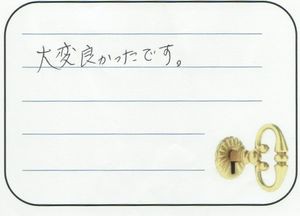 大変良かったです。